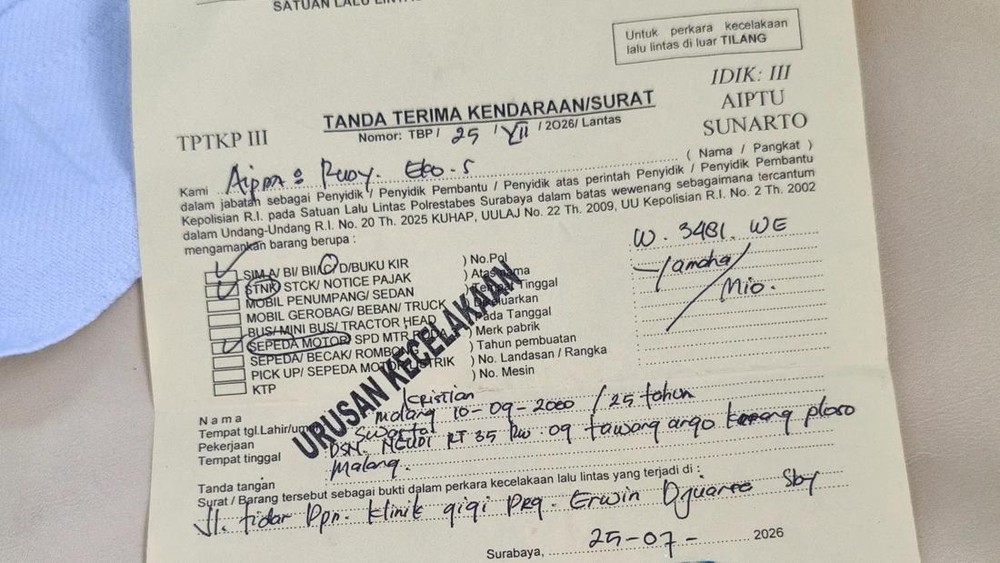 SATUAN LALU LINTAS
Untuk perkara kecelakaan
lalu lintas di luar TILANG
IDIK: III
AIPTU
SUNARTO
TPTKP III
TANDA TERIMA KENDARAAN/SURAT
Nomor: TBP / 25 / VII / 2026/ Lantas
Kami Aipda : Rudy. Eko. S ( Nama / Pangkat )
dalam jabatan sebagai Penyidik / Penyidik Pembantu / Penyidik atas perintah Penyidik / Penyidik Pembantu
Kepolisian R.I. pada Satuan Lalu Lintas Polrestabes Surabaya dalam batas wewenang sebagaimana tercantum
dalam Undang-Undang R.I. No. 20 Th. 2025 KUHAP, UULAJ No. 22 Th. 2009, UU Kepolisian R.I. No. 2 Th. 2002
mengamankan barang berupa :
SIM A/ BI/ BII/ C/ D/BUKU KIR ) No.Pol W. 3481. WE
STNK/ STCK/ NOTICE PAJAK ) Atas nama Yamaha
MOBIL PENUMPANG/ SEDAN ) Tempat Tinggal Mio.
MOBIL GEROBAG/ BEBAN/ TRUCK ) Dikeluarkan
BUS/ MINI BUS/ TRACTOR HEAD ) Pada Tanggal
SEPEDA MOTOR/ SPD MTR RODA ) Merk pabrik
SEPEDA/ BECAK/ ROMBONG ) Tahun pembuatan
PICK UP/ SEPEDA MOTOR LISTRIK ) No. Landasan / Rangka
KTP ) No. Mesin
URUSAN KECELAKAAN
Nama Kristian
Tempat tgl.Lahir/umur Malang 10-09-2000 / 25 tahun
Pekerjaan Swasta
Tempat tinggal DSN. NGUDI RT 35 RW 09 tawang argo karang ploso
Malang.
Tanda tangan
Surat / Barang tersebut sebagai bukti dalam perkara kecelakaan lalu lintas yang terjadi di :
Jl. tidar Dpn. klinik gigi Drg. Erwin Sby
Surabaya, 25-07- 2026